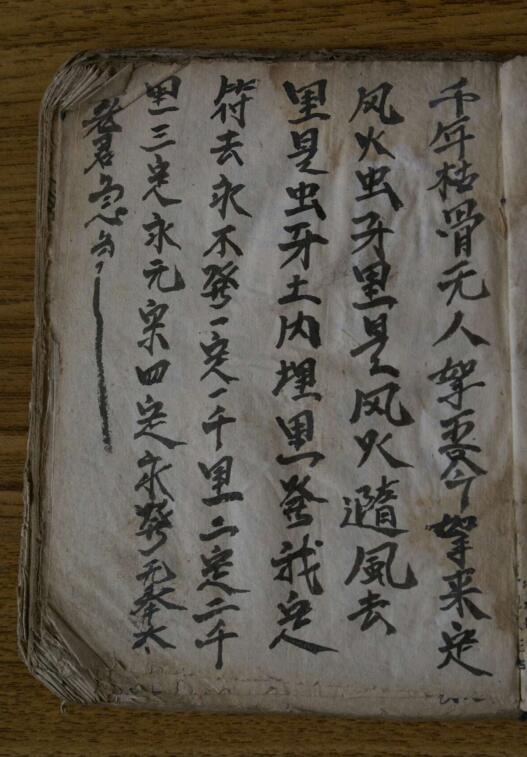 千年枯骨无人拏吾今拏来定
风火虫牙里是风火随風去
里是虫牙土内埋里發我定
符去永不發一定一千里二定二千
里三定永元宗四定永發元奉太
老君急令